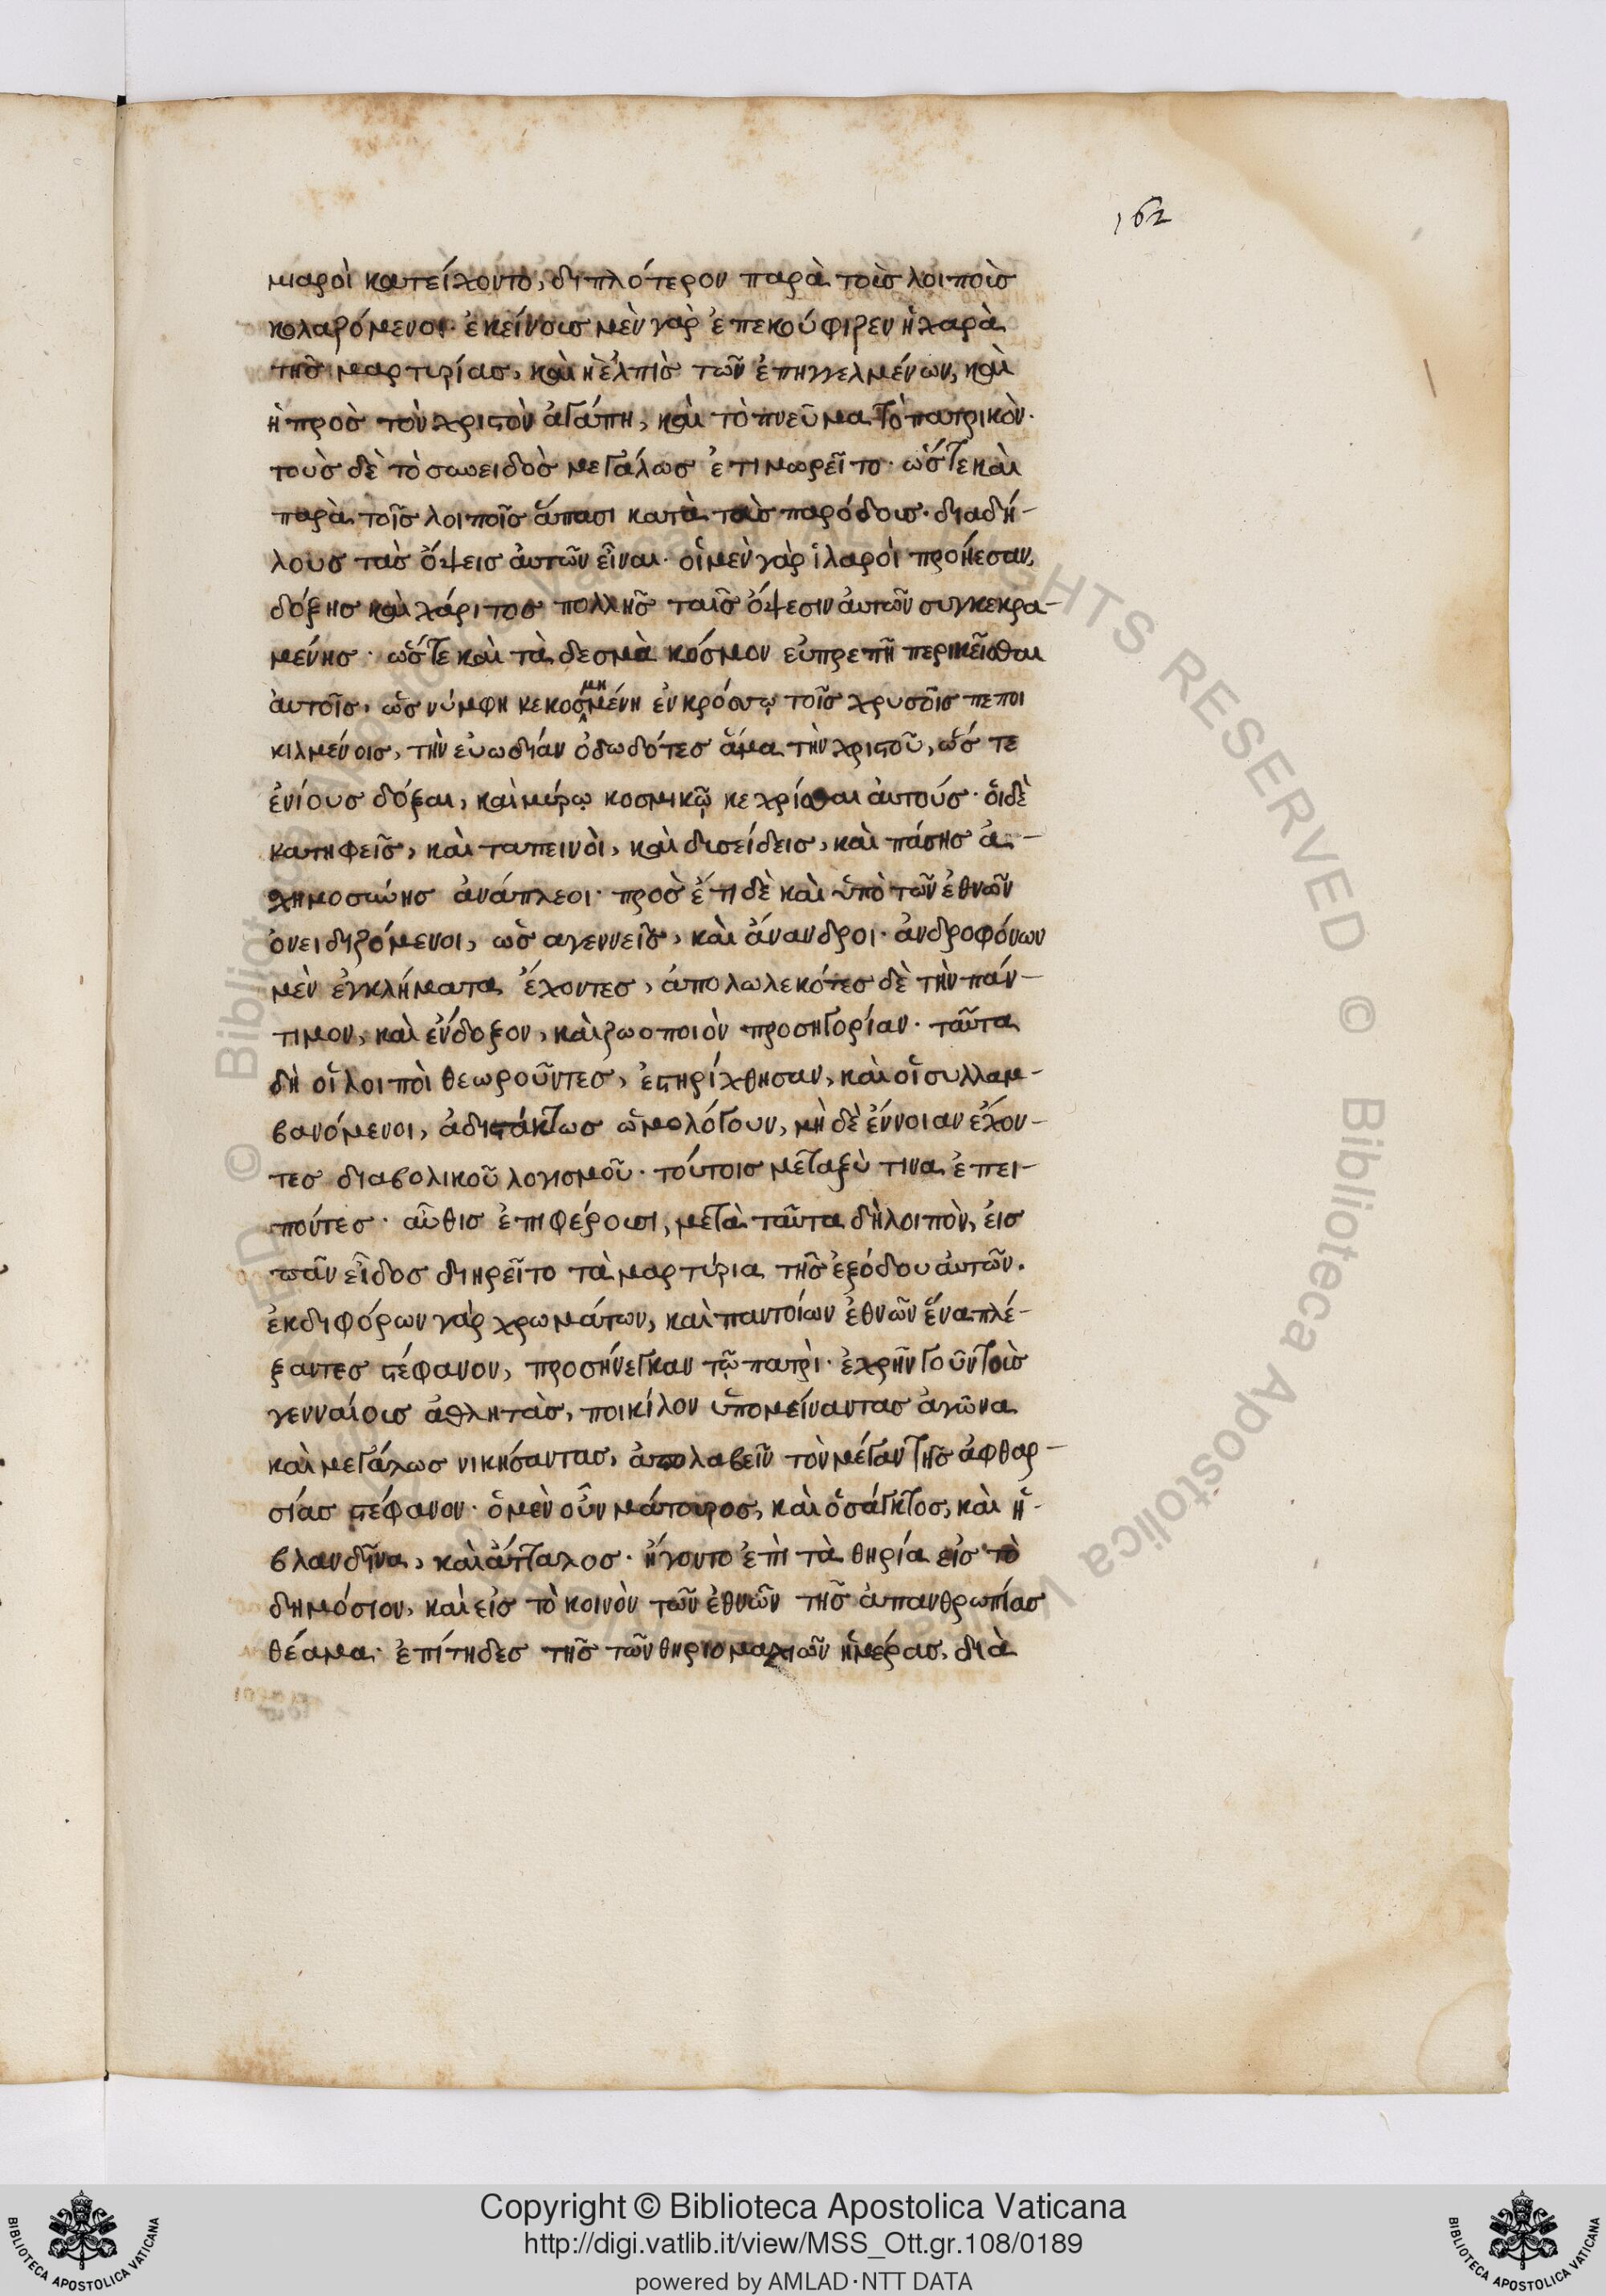 162
μιαροὶ κατείχοντο, διπλότερον παρὰ τοῖς λοιποῖς
κολαζόμενοι· ἐκείνους μὲν γὰρ ἐπεκούφιζεν ἡ χαρὰ
τῆς μαρτυρίας, καὶ ἡ ἐλπὶς τῶν ἐπηγγελμένων, καὶ
ἡ πρὸς τὸν χριστὸν ἀγάπη, καὶ τὸ πνεῦμα τὸ πατρικὸν·
τοὺς δὲ τὸ συνειδὸς μεγάλως ἐτιμωρεῖτο· ὥστε καὶ
παρὰ τοῖς λοιποῖς ἅπασι κατὰ τὰς παρόδους· διαδή-
λους τὰς ὄψεις αὐτῶν εἶναι· οἱ μὲν γὰρ ἱλαροὶ προῄεσαν,
δόξης καὶ χάριτος πολλῆς ταῖς ὄψεσιν αὐτῶν συγκεκρα-
μένης· ὥστε καὶ τὰ δεσμὰ κόσμον εὐπρεπῆ περικεῖσθαι
αὐτοῖς, ὡς νύμφη κεκοσμημένη ἐν κροσσῳ τοῖς χρυσοῖς πεποι
κιλμένοις, τὴν εὐωδίαν ὀδωδότες ἅμα τὴν χριστοῦ, ὥς τε
ἐνίους δόξαι, καὶ μύρῳ κοσμικῷ κεχρίσθαι αὐτούς· οἱ δὲ
κατηφεῖς, καὶ ταπεινοὶ, καὶ δυσείδεις, καὶ πάσης ἀ-
σχημοσύνης ἀνάπλεοι· προσέτι δὲ καὶ ὑπὸ τῶν ἐθνῶν
ὀνειδιζόμενοι, ὡς αγεννεῖς, καὶ ἄνανδροι· ἀνδροφόνων
μὲν ἐγκλήματα ἔχοντες, ἀπολωλεκότες δὲ τὴν πάν-
τιμον, καὶ ἔνδοξον, καὶ ζωοποιὸν προσηγορίαν· ταῦτα
δὴ οἱ λοιποὶ θεωροῦντες, ἐστηρίχθησαν, καὶ οἱ συλλαμ-
βανόμενοι, ἀδιστάκτως ὡμολόγουν, μὴ δὲ ἔννοιαν ἔχον-
τες διαβολικοῦ λογισμοῦ· τούτοις μεταξὺ τινα ἐπει-
πόντες· αὖθις ἐπιφέρουσι, μετὰ ταῦτα δὴ λοιπὸν, εἰς
πᾶν εἶδος διῃρεῖτο τὰ μαρτύρια τῆς ἐξόδου αὐτῶν.
ἐκ διφόρων γὰρ χρωμάτων, καὶ παντοίων ἐθνῶν ἕνα πλέ-
ξαντες στέφανον, προσήνεγκαν τῷ πατρὶ· ἐχρῆν γοῦν τοὺς
γενναίους ἀθλητὰς, ποικίλον ὑπομείναντας ἀγῶνα
καὶ μεγάλως νικήσαντας, ἀπολαβεῖν τὸν μέγαν τῆς ἀφθαρ-
σίας στέφανον· ὁ μὲν οὖν μάτουρος, καὶ ὁ σάγκτος, καὶ ἡ-
βλανδῖνα, καὶ ἄτταλος· ἤγοντο ἐπὶ τὰ θηρία εἰς τὸ
δημόσιον, καὶ εἰς τὸ κοινὸν τῶν ἐθνῶν τῆς ἀπανθρωπίας
θέαμα· ἐπίτηδες τῆς τῶν θηριομαχιῶν ἡμέρας, διὰ
Copyright © Biblioteca Apostolica Vaticana
http://digi.vatlib.it/view/MSS_Ott.gr.108/0189
powered by AMLAD·NTT DATA